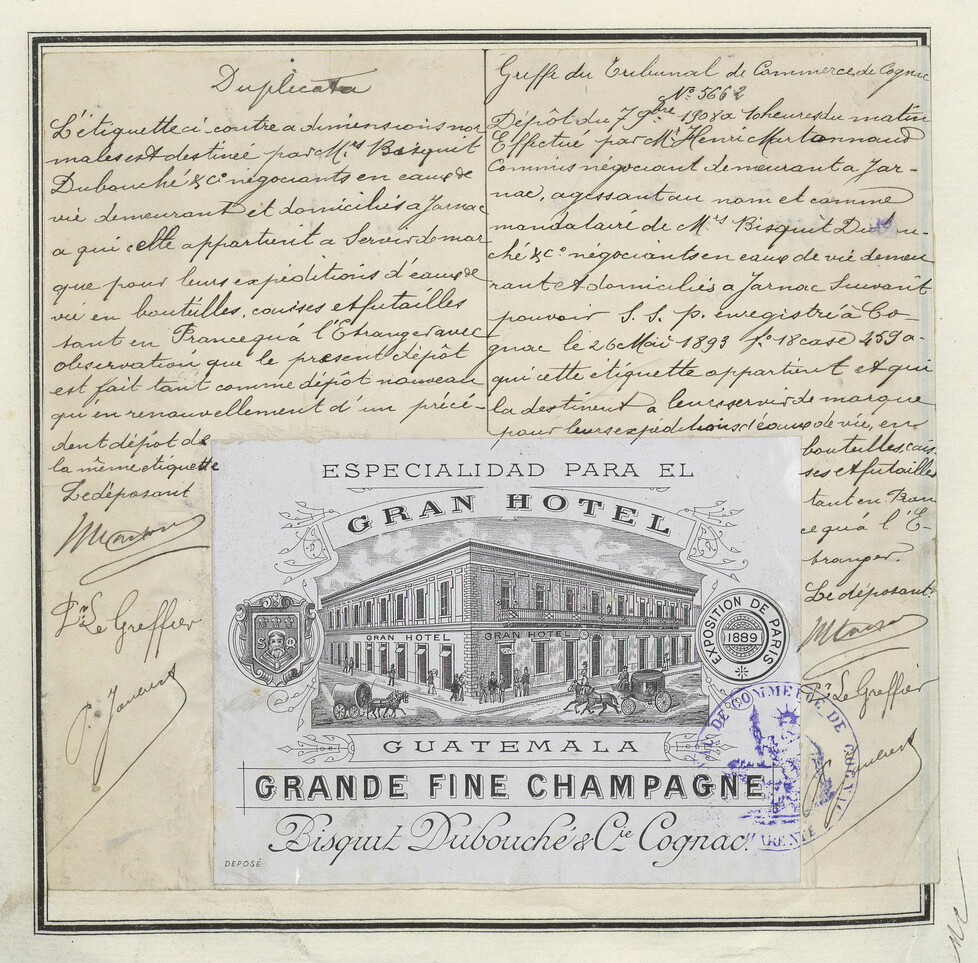 Duplicata
L'étiquette ci-contre a dimensions nor
males est destinée par M.rs Bisquit
Dubouché & Cº négociants en eaux de
vie demeurant et domiciliés a Jarnac
a qui elle appartient a Servir de mar
que pour leurs expéditions d'eaux de
vie en bouteilles, caisses et futailles
tant en France qu'à l'Etranger avec
observation que le présent dépôt
est fait tant comme dépôt nouveau
qu'en renouvellement d'un précé-
dent dépôt de
la même étiquette
Le déposant
Pr Le Greffier
Greffe du Tribunal de Commerce de Cognac
Nº 5662
Dépôt du 7 9bre 1908 a 10 heures du matin
Effectué par Mr Henri Martonnaud
Commis négociant demeurant a Jar-
nac, agissant au nom et comme
mandataire de M.rs Bisquit Dubou-
ché & Cº négociants en eaux de vie demeu
rant et domiciliés a Jarnac Suivant
pouvoir S. S. p. enregistré à Co-
gnac le 26 Mai 1893 fº 18 case 259 a-
qui cette étiquette appartient et qui
la destinent a leurs servir de marque
pour leurs expéditions d'eaux de vie, en
bouteilles, cais-
ses et futailles
tant en Fran
ce qu'à l'É-
tranger.
Le déposant
Pr Le Greffier
ESPECIALIDAD PARA EL
GRAN HOTEL
GRAN HOTEL
GRAN HOTEL
EXPOSITION DE PARIS
1889
GUATEMALA
GRANDE FINE CHAMPAGNE
Bisquit Dubouché & Cie Cognac.
DEPOSÉ
DE COMMERCE DE COGNAC
CHARENTE